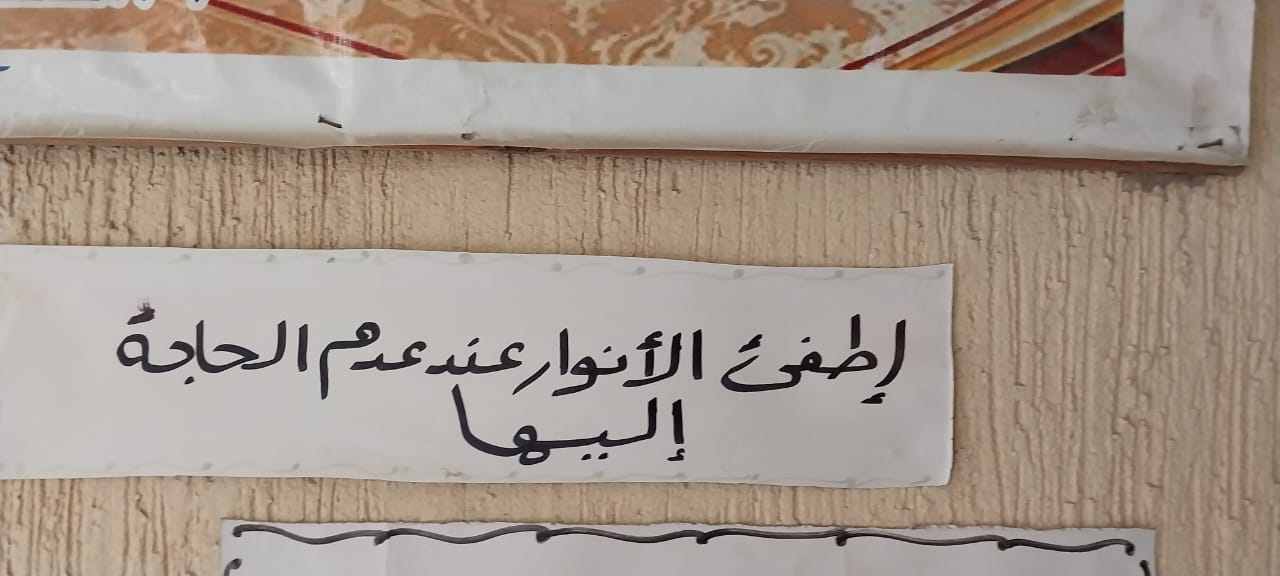 إطفئ الأنوار عند عدم الحاجة
إليها